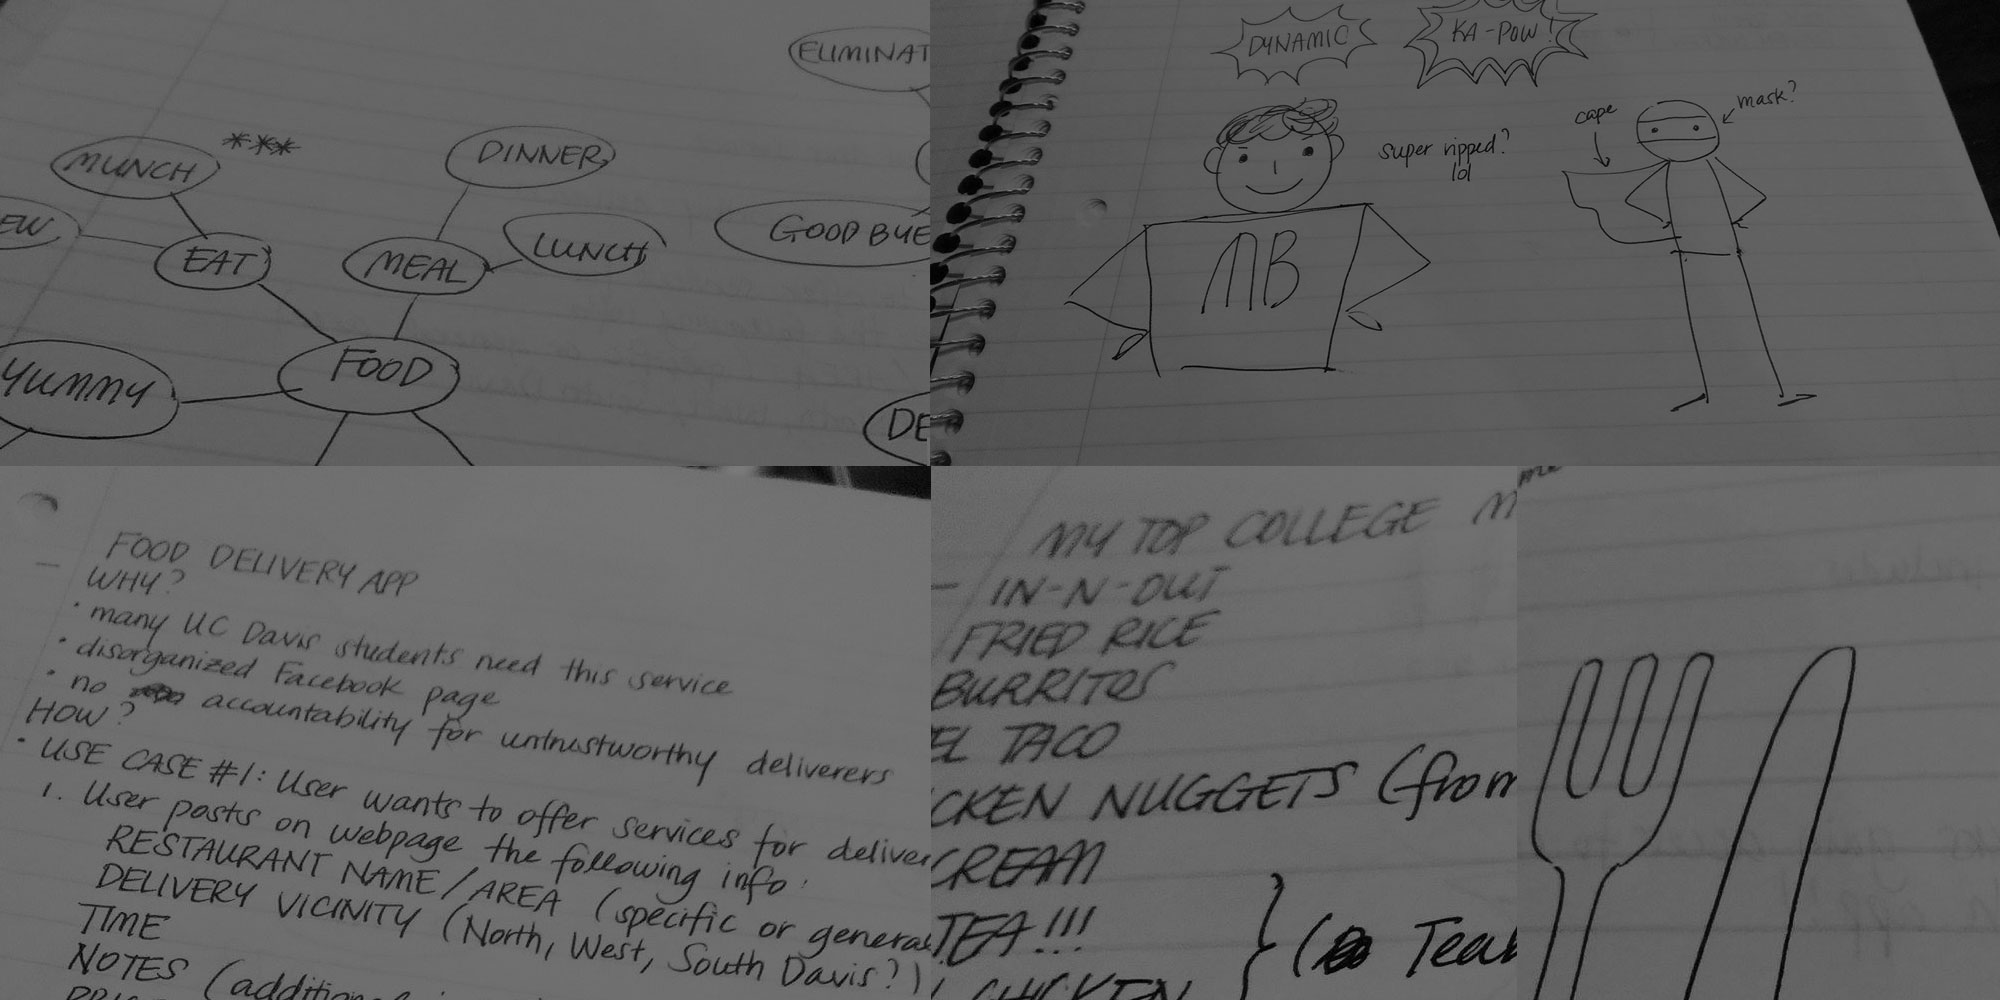 ELIMINAT
MUNCH ***
DINNER
EW
EAT
MEAL
LUNCH
GOODBYE
YUMMY
FOOD
DE
DYNAMIC
KA-POW!
super ripped?
lol
cape
mask?
MB
FOOD DELIVERY APP
WHY?
• many UC Davis students need this service
• disorganized Facebook page
• no accountability for untrustworthy deliverers
HOW?
• USE CASE #1: User wants to offer services for deliver
1. User posts on webpage the following info:
RESTAURANT NAME/AREA (specific or general
DELIVERY VICINITY (North, West, South Davis?)
TIME
NOTES (additional
MY TOP COLLEGE M
- IN-N-OUT
FRIED RICE
BURRITOS
EL TACO
CKEN NUGGETS (from
CREAM
TEA!!!
CHICKEN } (Tea